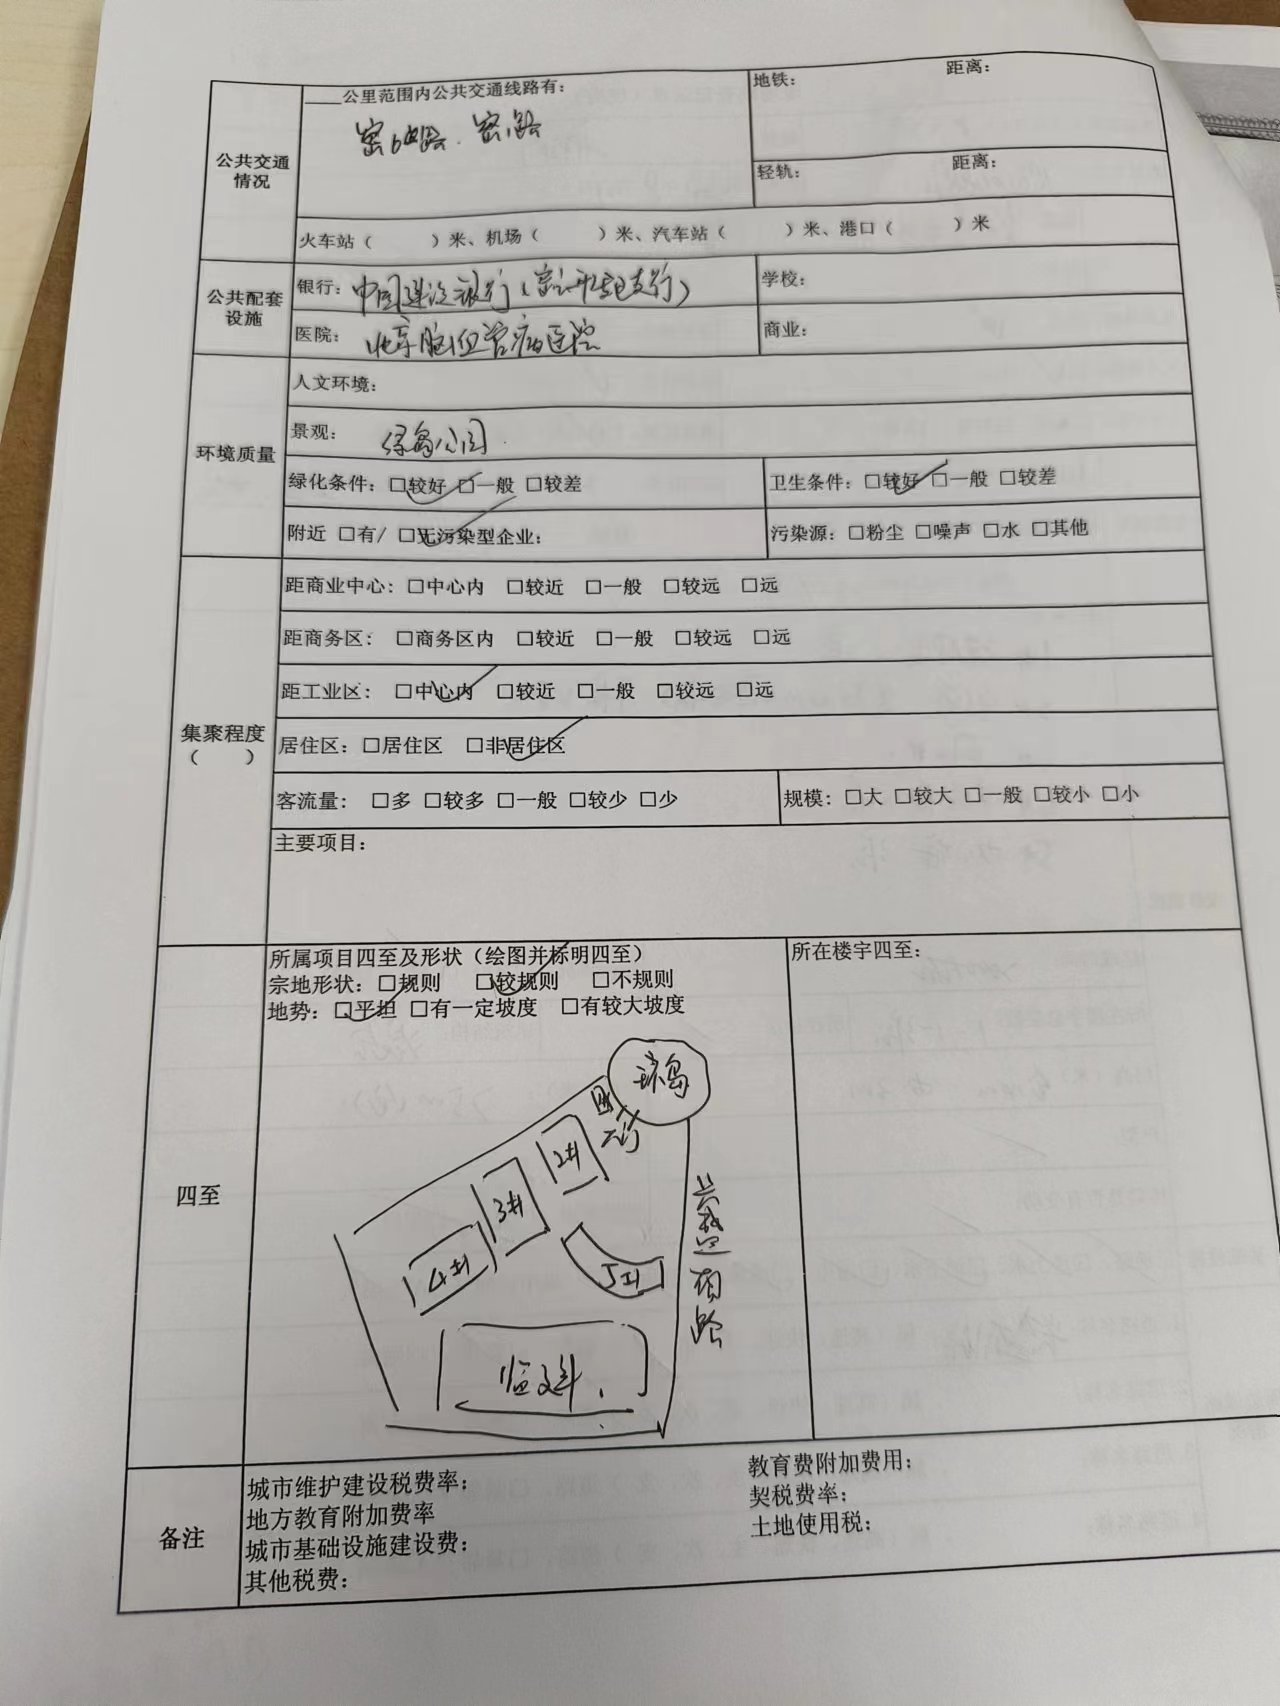 公共交通
情况
____公里范围内公共交通线路有：
地铁：
距离：
轻轨：
距离：
火车站（ ）米、机场（ ）米、汽车站（ ）米、港口（ ）米
公共配套
设施
银行：中国建设银行（ 支行）
学校：
医院：北京脑血管病医院
商业：
环境质量
人文环境：
景观：绿岛公园
绿化条件：□较好 □一般 □较差
卫生条件：□较好 □一般 □较差
附近 □有/ □无污染型企业：
污染源：□粉尘 □噪声 □水 □其他
集聚程度
（ ）
距商业中心：□中心内 □较近 □一般 □较远 □远
距商务区：□商务区内 □较近 □一般 □较远 □远
距工业区：□中心内 □较近 □一般 □较远 □远
居住区：□居住区 □非居住区
客流量：□多 □较多 □一般 □较少 □少
规模：□大 □较大 □一般 □较小 □小
主要项目：
四至
所属项目四至及形状（绘图并标明四至）
宗地形状：□规则 □较规则 □不规则
地势：□平坦 □有一定坡度 □有较大坡度
所在楼宇四至：
环岛
2#
3#
4#
5#
路
备注
城市维护建设税费率：
教育费附加费用：
地方教育附加费率
契税费率；
城市基础设施建设费：
土地使用税：
其他税费：